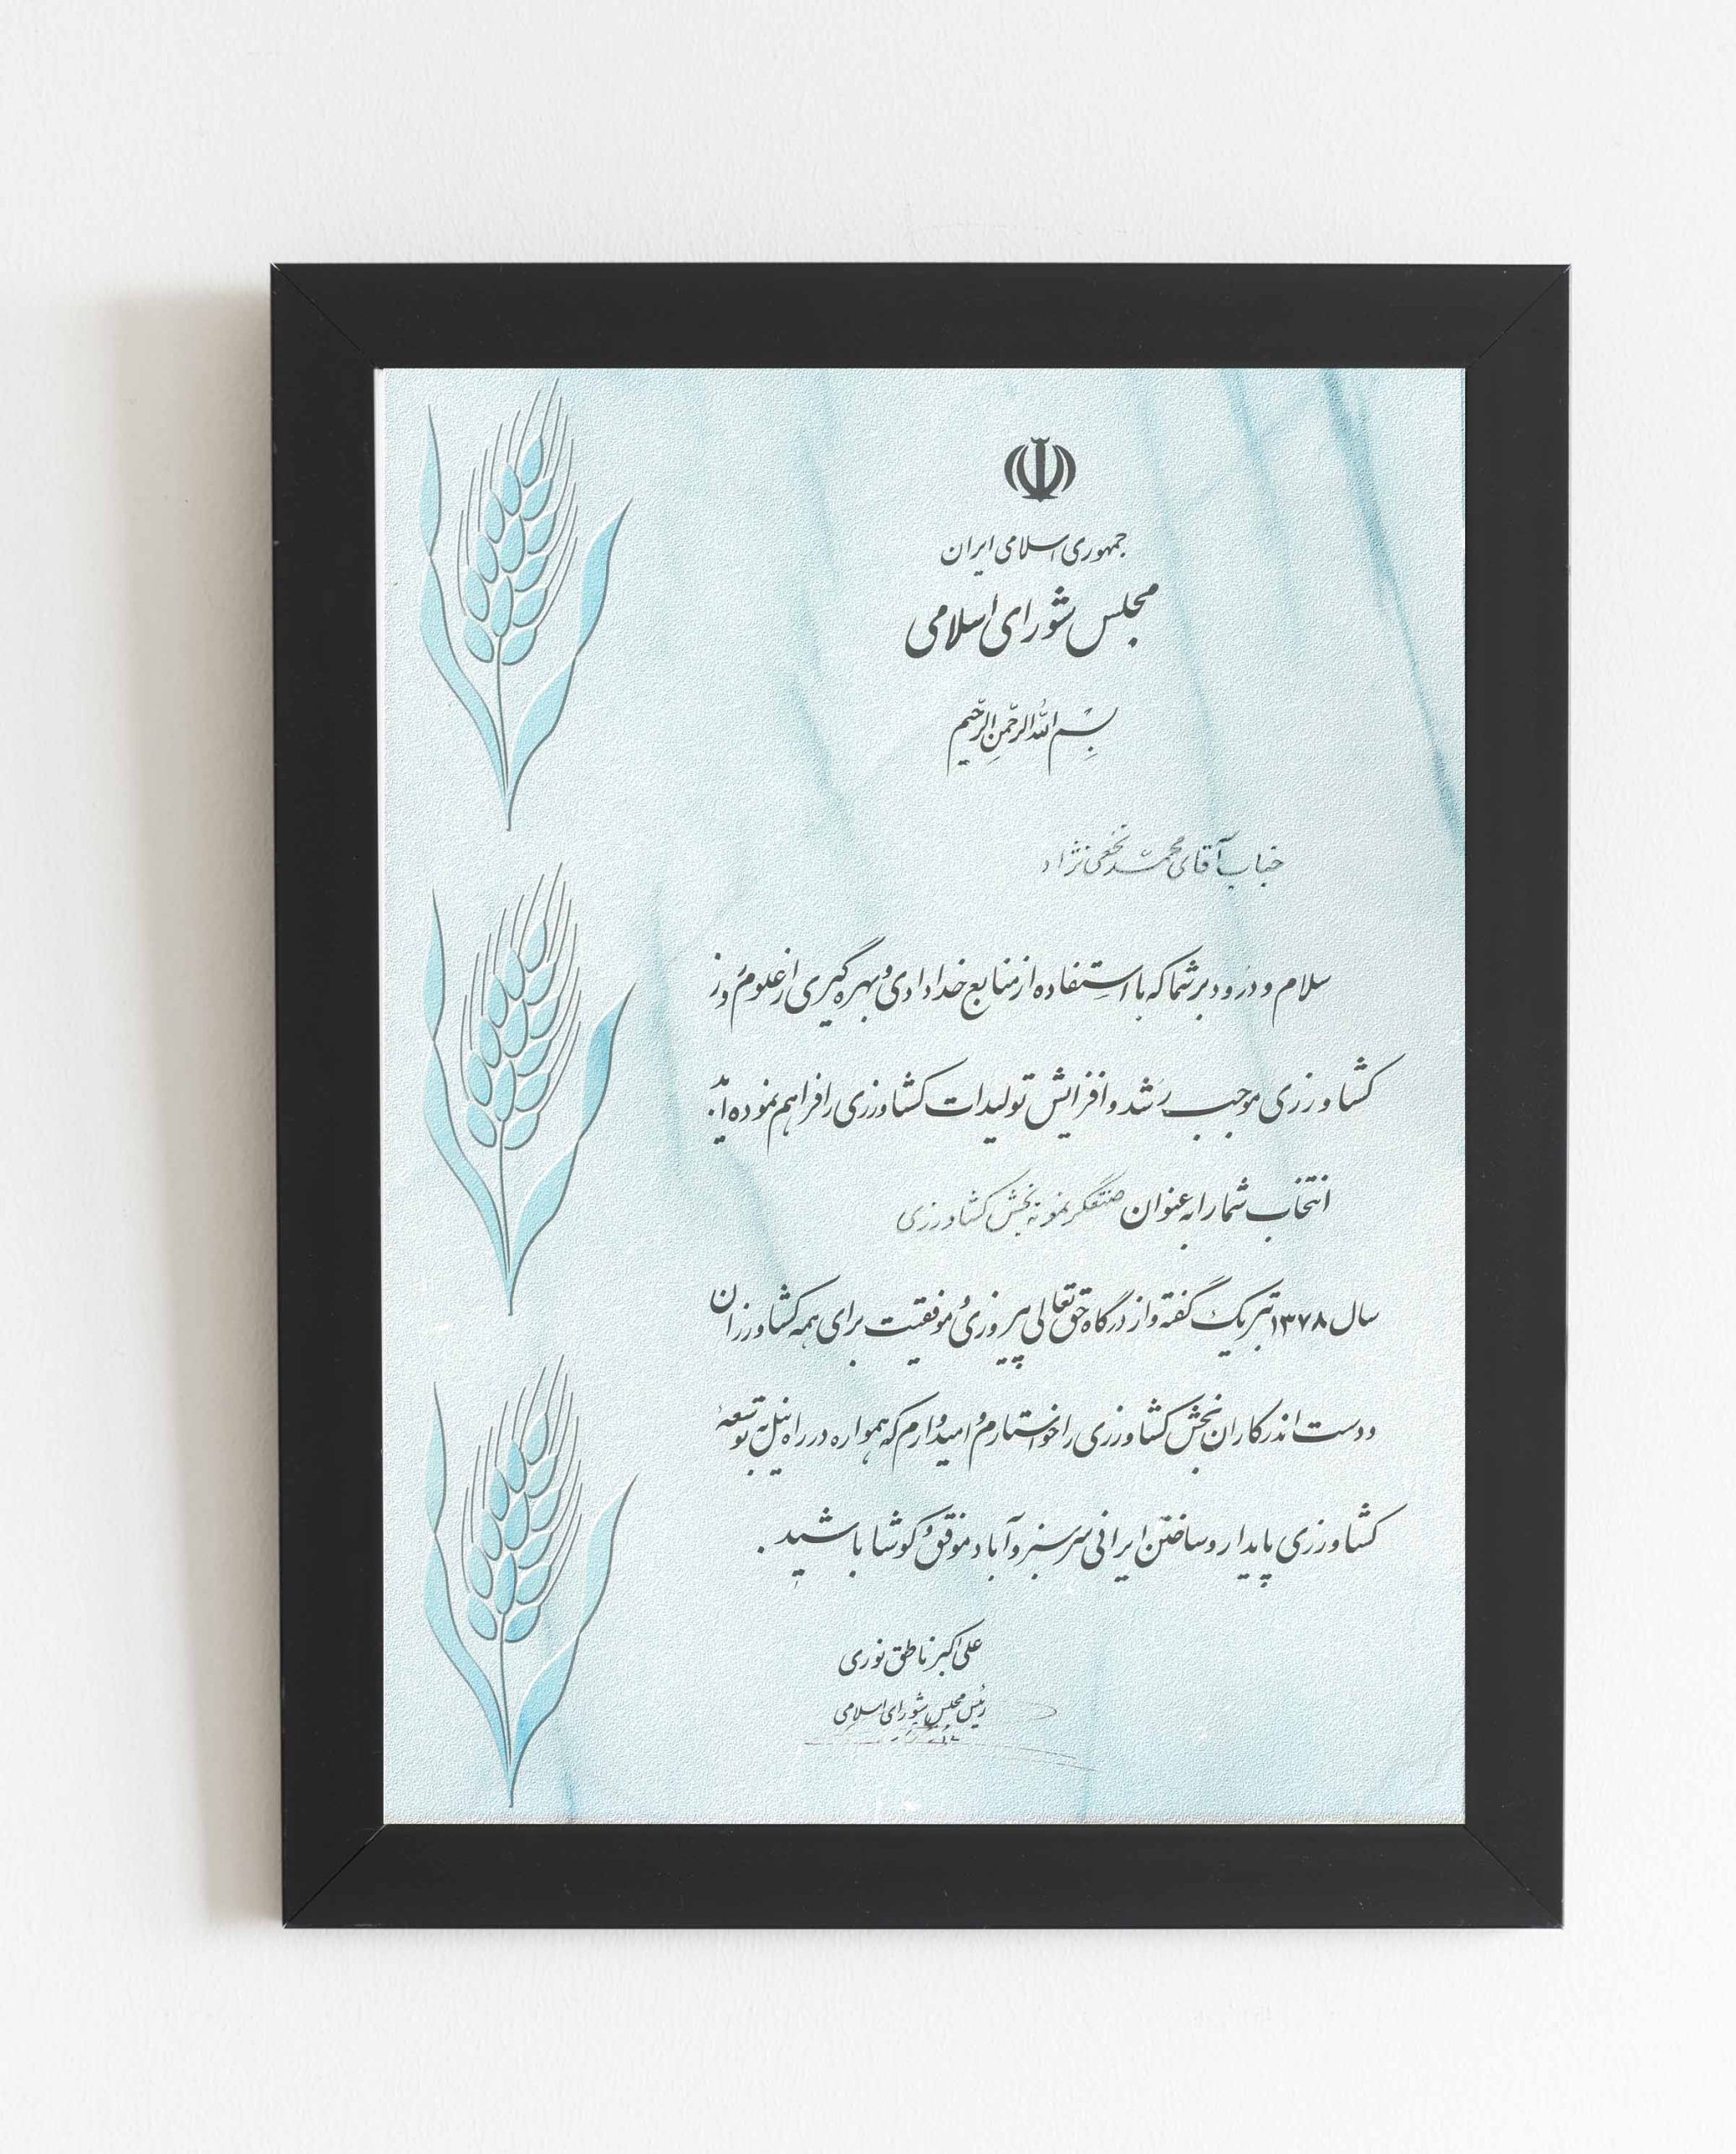 جمهوری اسلامی ایران
مجلس شورای اسلامی
بسم الله الرحمن الرحیم
جناب آقای محمد نخعی نژاد
سلام و درود بر شما که با استفاده از منابع خدادادی و بهره گیری از علوم روز
کشاورزی موجب رشد و افزایش تولیدات کشاورزی را فراهم نموده اید.
انتخاب شما را به عنوان صنعتگر نمونه بخش کشاورزی
سال ۱۳۷۸ تبریک گفته و از درگاه حق تعالی پیروزی و موفقیت برای همه کشاورزان
و دست اندرکاران بخش کشاورزی را خواستارم و امیدوارم که همواره در راه نیل به توسعه
کشاورزی پایدار و ساختن ایرانی سرسبز و آباد موفق و کوشا باشید.
علی اکبر ناطق نوری
رئیس مجلس شورای اسلامی